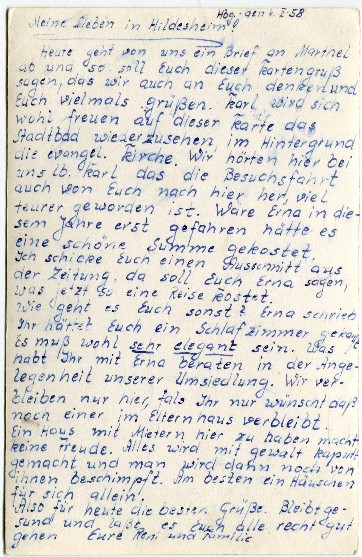 Hbg. den 4. I. 58
Meine Lieben in Hildesheim!
Heute geht von uns ein Brief an Marthel
ab und so soll Euch dieser Kartengruß
sagen, das wir auch an Euch denken und
Euch vielmals grüßen. Karl wird sich
wohl freuen auf dieser Karte das
Stadtbad wiederzusehen, im Hintergrund
die evangel. Kirche. Wir hörten hier bei
uns lb. Karl das die Besuchsfahrt
auch von Euch nach hier her, viel
teurer geworden ist. Wäre Erna in die-
sem Jahre erst gefahren hätte es
eine schöne Summe gekostet.
Ich schicke Euch einen Ausschnitt aus
der Zeitung, da soll Euch Erna sagen,
was jetzt so eine Reise kostet.
Wie geht es Euch sonst? Erna schrieb
Ihr hättet Euch ein Schlafzimmer gekauft
Es muß wohl sehr elegant sein. Was
habt Ihr mit Erna beraten in der Ange-
legenheit unserer Umsiedlung. Wir ver-
bleiben nur hier, fals Ihr nur wünscht daß
noch einer im Elternhaus verbleibt.
Ein Haus mit Mietern hier zu haben macht
keine Freude. Alles wird mit gewalt kaputt
gemacht und man wird dann noch von
ihnen beschimpft. Am besten ein Häuschen
für sich allein.
Also für heute die besten Grüße. Bleibt ge-
sund und laßt es Euch alle recht gut
gehen Eure Meni und Familie